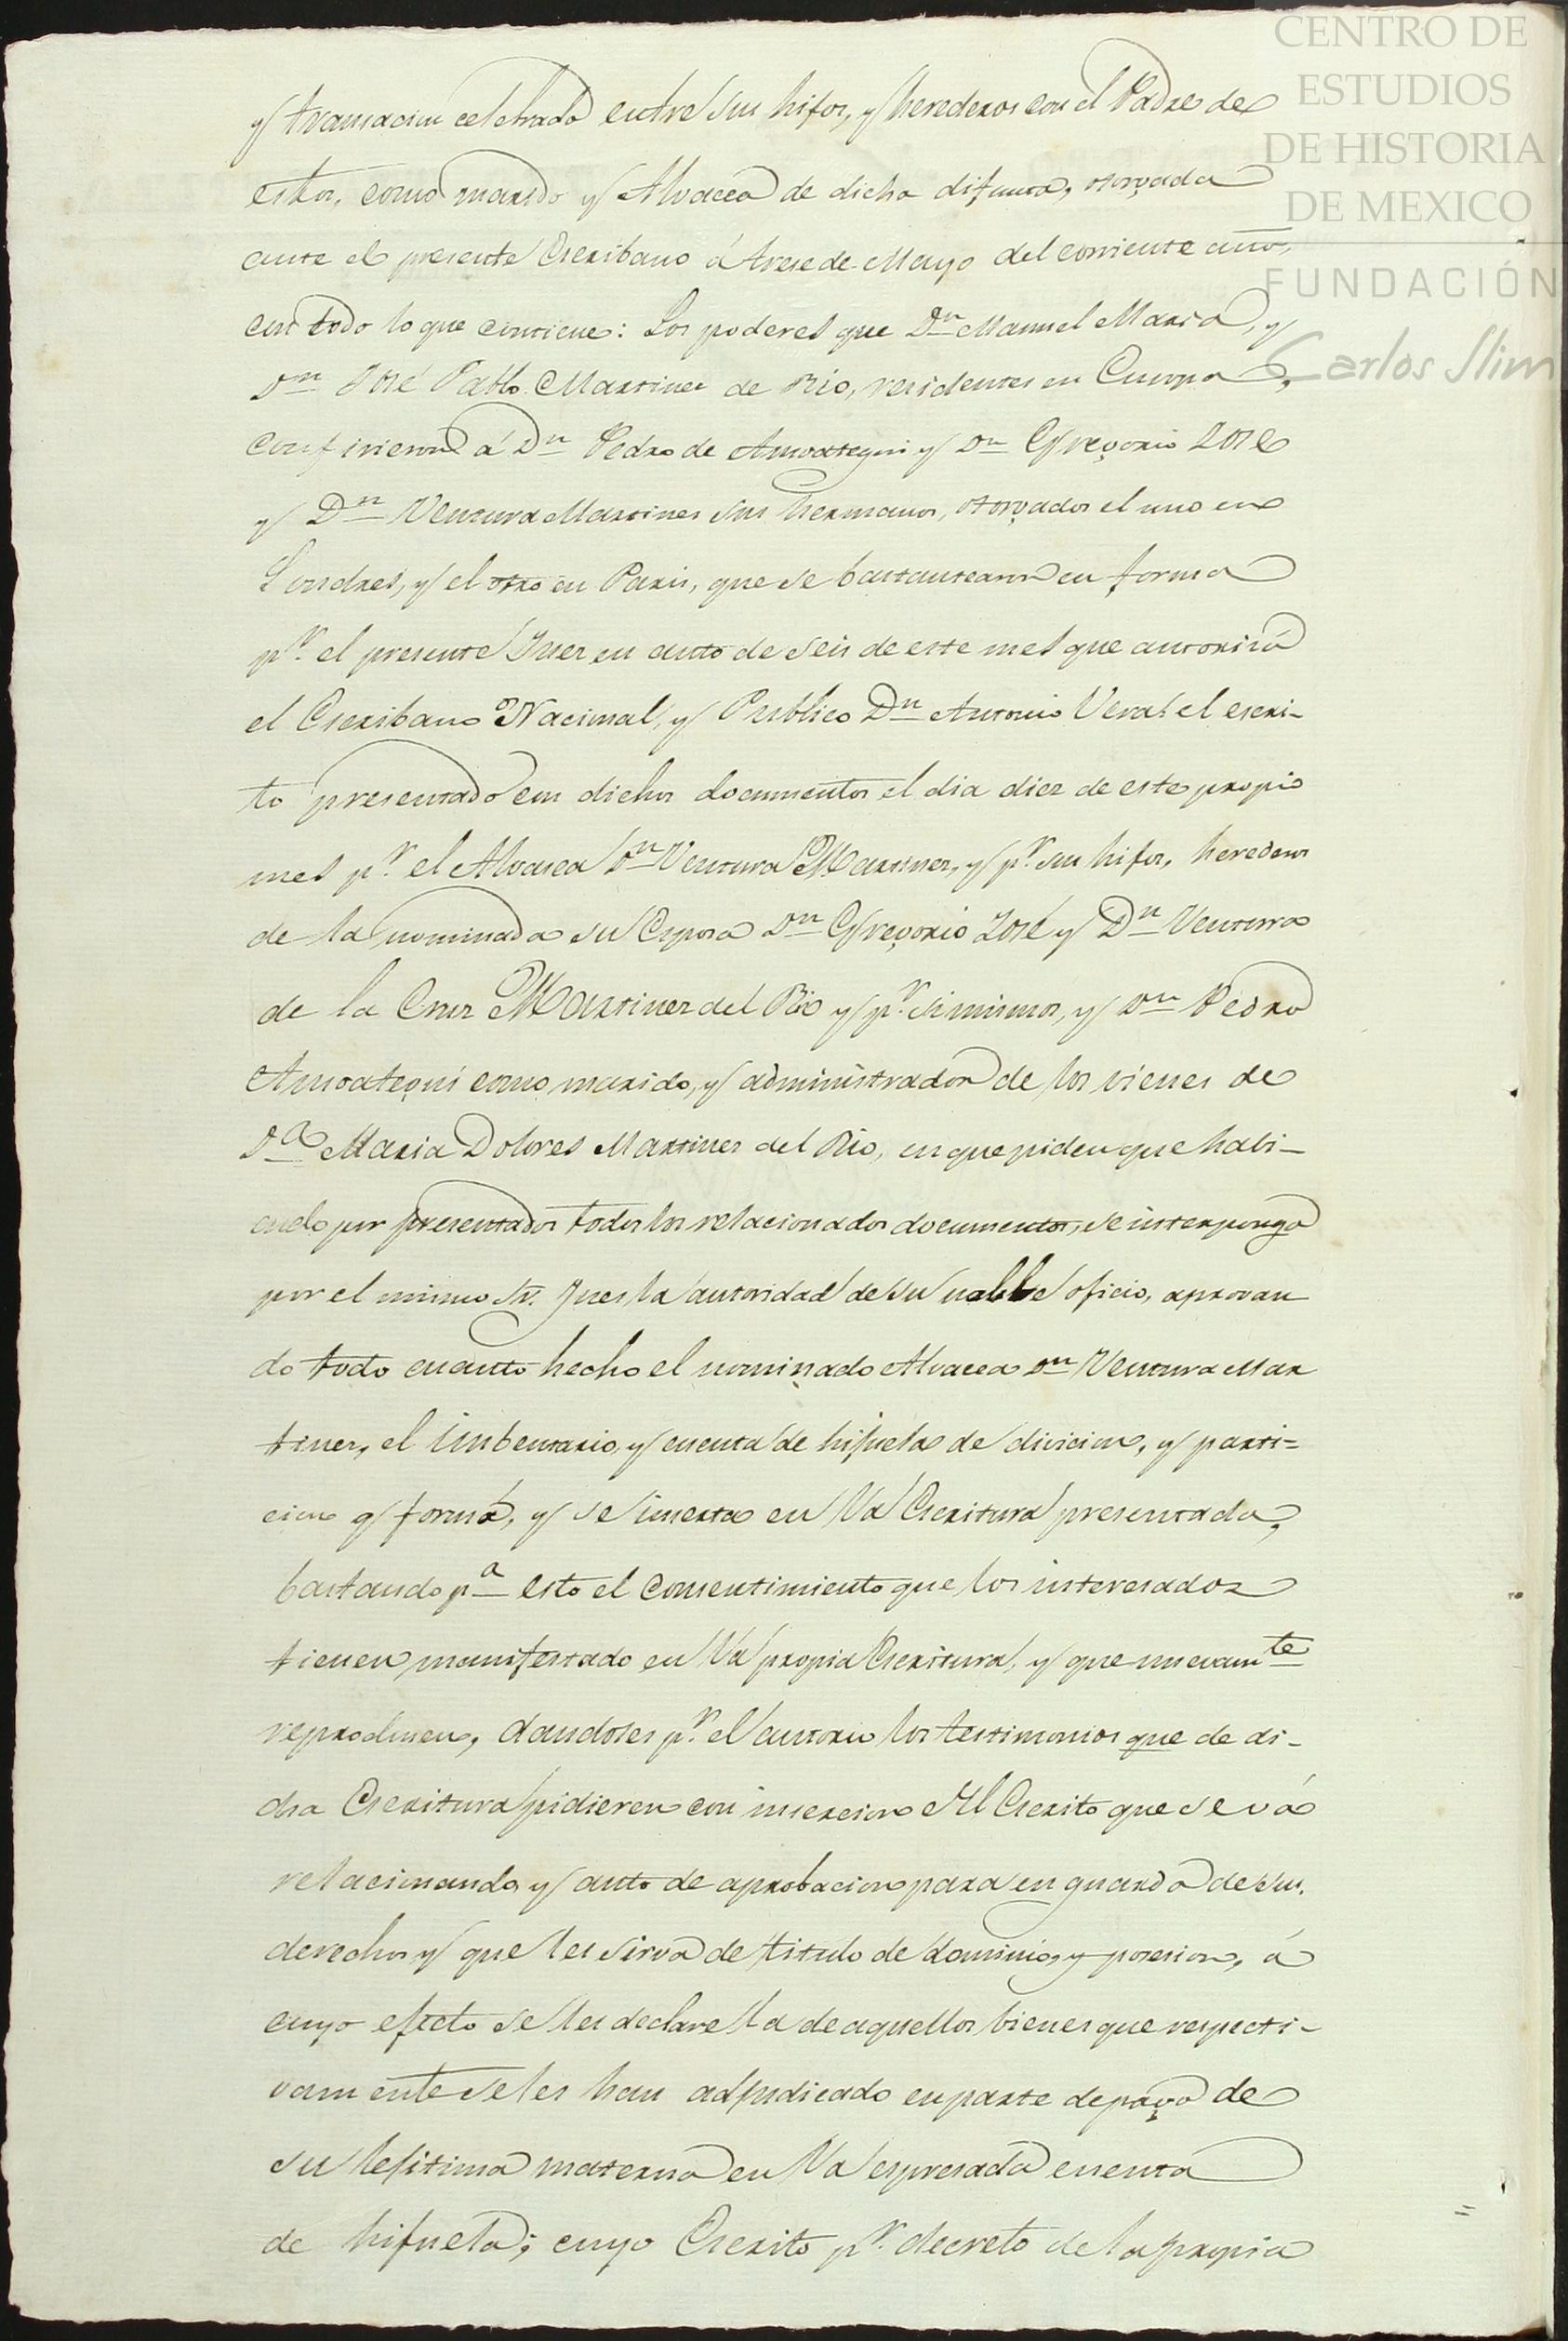 CENTRO DE
ESTUDIOS
DE HISTORIA
DE MEXICO
FUNDACIÓN
Carlos Slim
y transacion celebrada entre sus hijos, y herederos con el Padre de
estos, como marido y Alvacea de dicha difunta, otorgada
ante el presente Escribano á trese de Mayo del corriente año,
con todo lo que contiene: Los poderes que Dn Manuel Maria, y
Dn José Pablo Martinez de Rio, residentes en Europa,
confirieron á Dn Pedro de Ansoategui y Dn Gregorio José
y Dn Ventura Martines sus hermanos, otorgados el uno en
Londres, y el otro en Paris, que se bastantearon en forma
pr. el presente Juez en auto de seis de este mes que autorisó
el Escribano Nacional, y Publico Dn Antonio Vera: el escri-
to presentado con dichos documentos el dia diez de este propio
mes pr. el Alvacea Dn Ventura Martinez, y pr. sus hijos, herederos
de la nominada su Esposa Dn Gregorio José y Dn Ventura
de la Cruz Martinez del Rio y pr. si mismos, y Dn Pedro
Ansoategui como marido, y administrador de los vienes de
Da Maria Dolores Martines del Rio, en que piden que habi-
endo por presentados todos los relacionados documentos, se interponga
por el mismo Sr. Jues la autoridad de su noble oficio, aprovan
do todo cuanto hecho el nominado Alvacea Dn Ventura Mar
tinez, el imbentario, y cuenta de hijuela de divicion, y parti-
cion q formó, y se inserta en la Escritura presentada,
bastando pa esto el consentimiento que los interesados
tienen manifestado en la propia Escritura, y que nuevamte
reproducen, dandoses pr. el autorio los testimonios que de di-
cha Escritura pidieren con insercion del Escrito que se vá
relacionando y auto de aprobacion para en guarda de sus
derechos y que les sirva de titulo de dominio, y posesion, á
cuyo efecto se les declare la de aquellos bienes que respecti-
vamente se les han adjudicado en parte de pago de
su lejitima materna en la espresada cuenta
de hijuela; cuyo Escrito pr. decreto de la propia